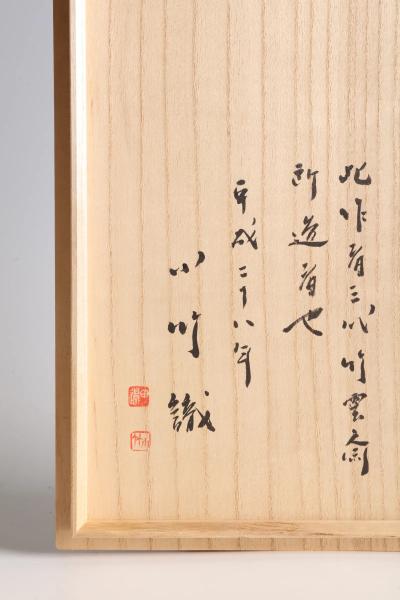 此作者三代竹雲斎
所造者也
平成二十八年
小竹識
小竹